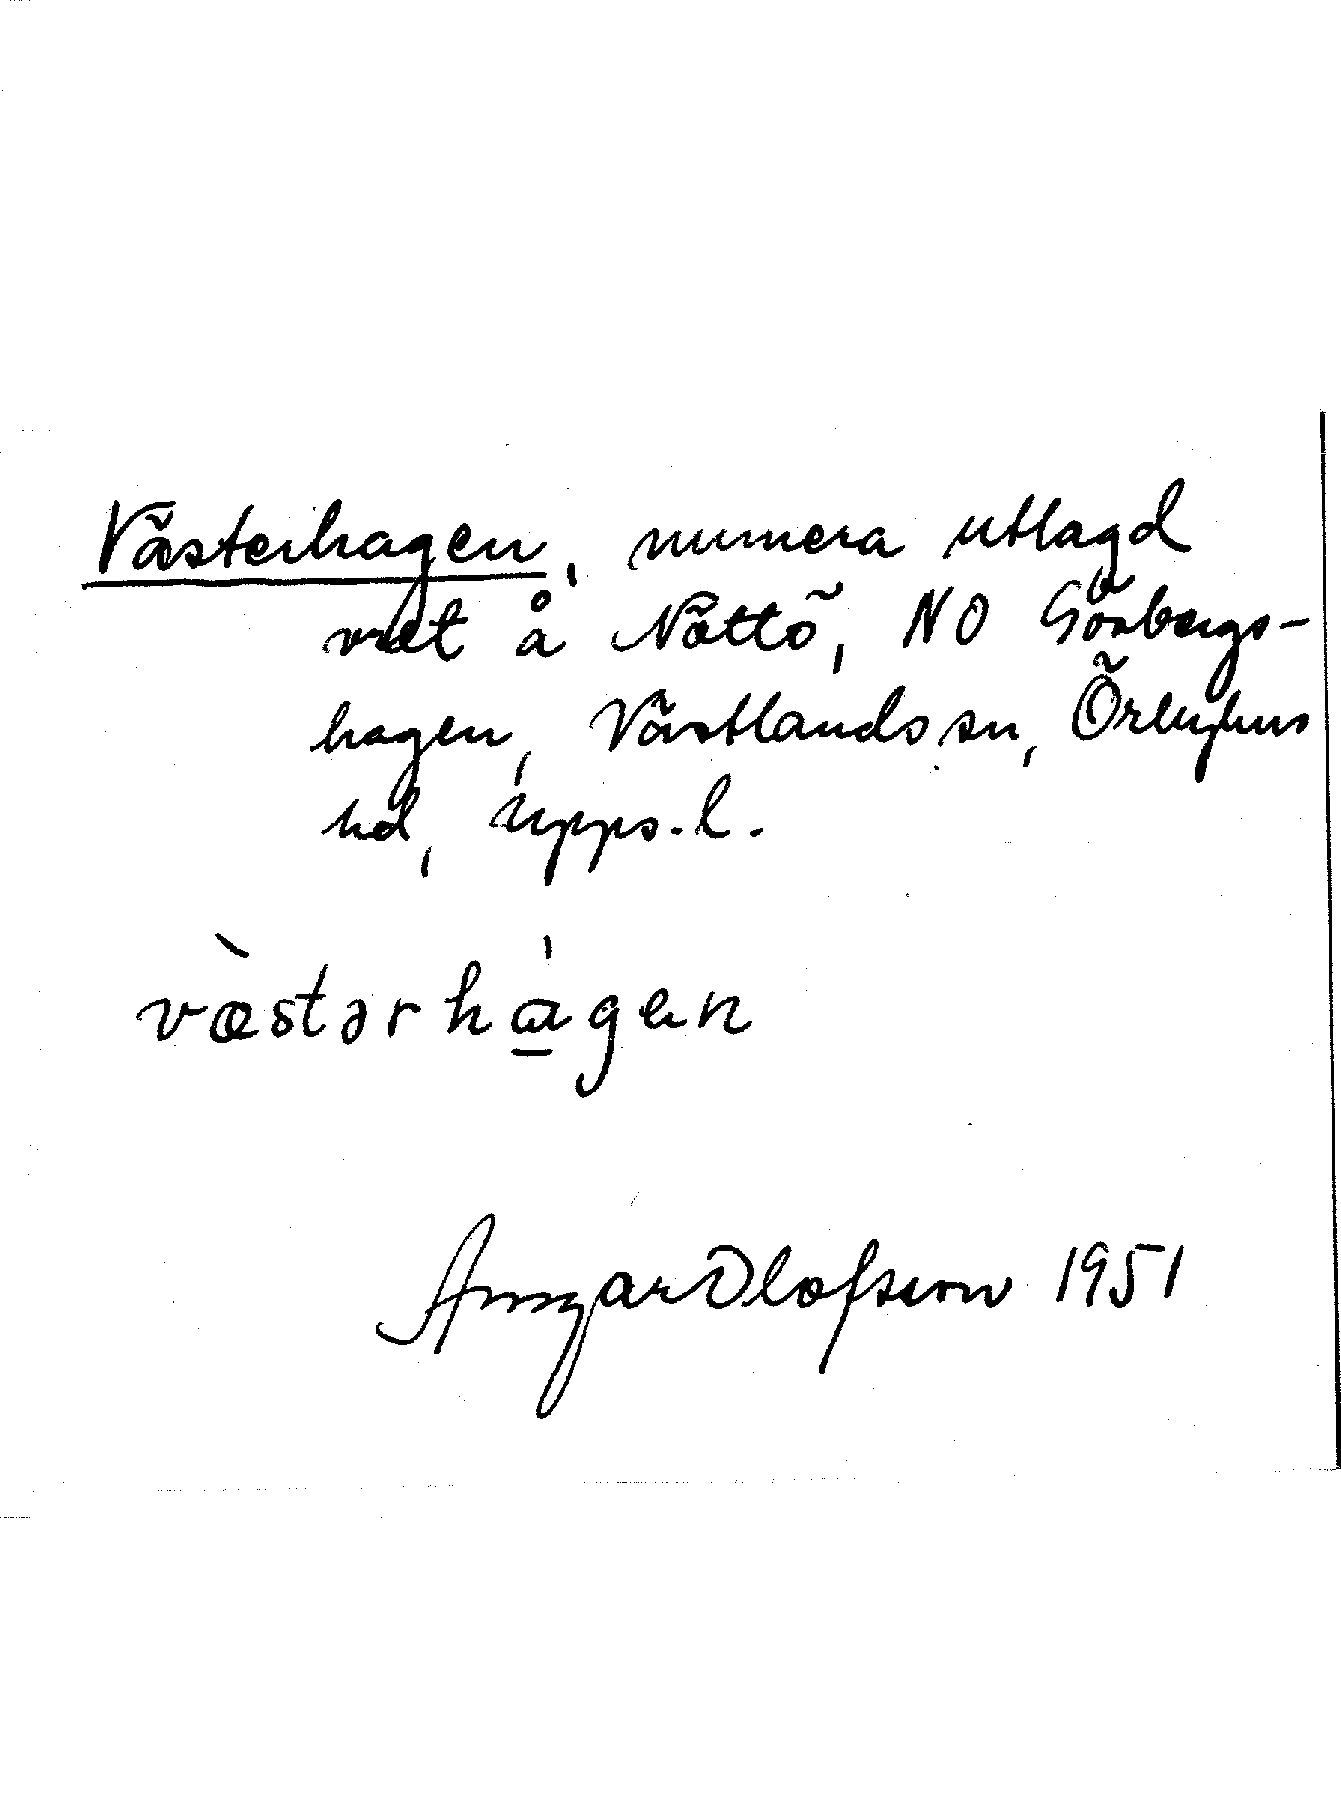 Västerhagen, numera utlagd
vret å Nöttö, NO Görbergs-
hagen, Västlands sn, Örbyhus
hd, Upps. l.
væ̀stərhа̲́gen
Ansgar Olofsson 1951